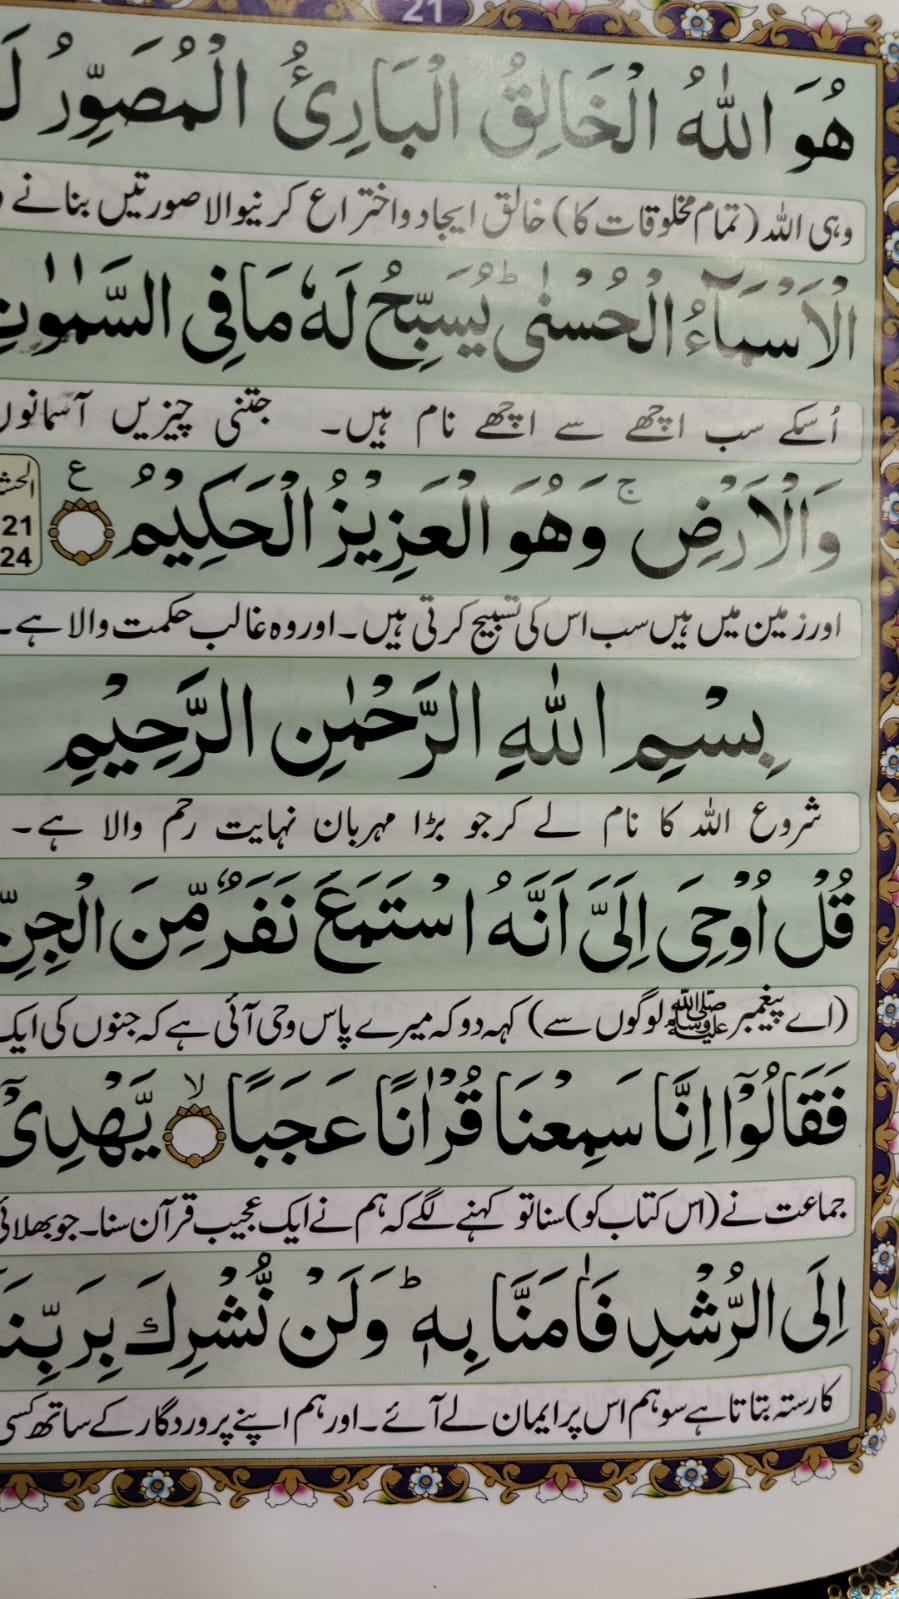 21
هُوَ اللّٰهُ الْخَالِقُ الْبَارِئُ الْمُصَوِّرُ لَ
وہی اللہ (تمام مخلوقات کا) خالق ایجاد و اختراع کرنیوالا صورتیں بنانے و
الْاَسْمَآءُ الْحُسْنٰىؕ يُسَبِّحُ لَهٗ مَا فِى السَّمٰوٰتِ
اُسکے سب اچھے سے اچھے نام ہیں۔ جتنی چیزیں آسمانوں
وَالْاَرْضِۚ وَهُوَ الْعَزِيْزُ الْحَكِيْمُ ع
الحشر
21
24
اور زمین میں ہیں سب اس کی تسبیح کرتی ہیں۔ اور وہ غالب حکمت والا ہے۔
بِسْمِ اللّٰهِ الرَّحْمٰنِ الرَّحِيْمِ
شروع اللہ کا نام لے کر جو بڑا مہربان نہایت رحم والا ہے۔
قُلْ اُوْحِىَ اِلَىَّ اَنَّهُ اسْتَمَعَ نَفَرٌ مِّنَ الْجِنِّ
(اے پیغمبر ﷺ لوگوں سے) کہہ دو کہ میرے پاس وحی آئی ہے کہ جنوں کی ایک
فَقَالُوْۤا اِنَّا سَمِعْنَا قُرْاٰنًا عَجَبًاۙ يَّهْدِىْۤ
جماعت نے (اس کتاب کو) سنا تو کہنے لگے کہ ہم نے ایک عجیب قرآن سنا۔ جو بھلائی
اِلَى الرُّشْدِ فَاٰمَنَّا بِهٖؕ وَلَنْ نُّشْرِكَ بِرَبِّنَا
کا رستہ بتاتا ہے سو ہم اس پر ایمان لے آئے۔ اور ہم اپنے پروردگار کے ساتھ کسی